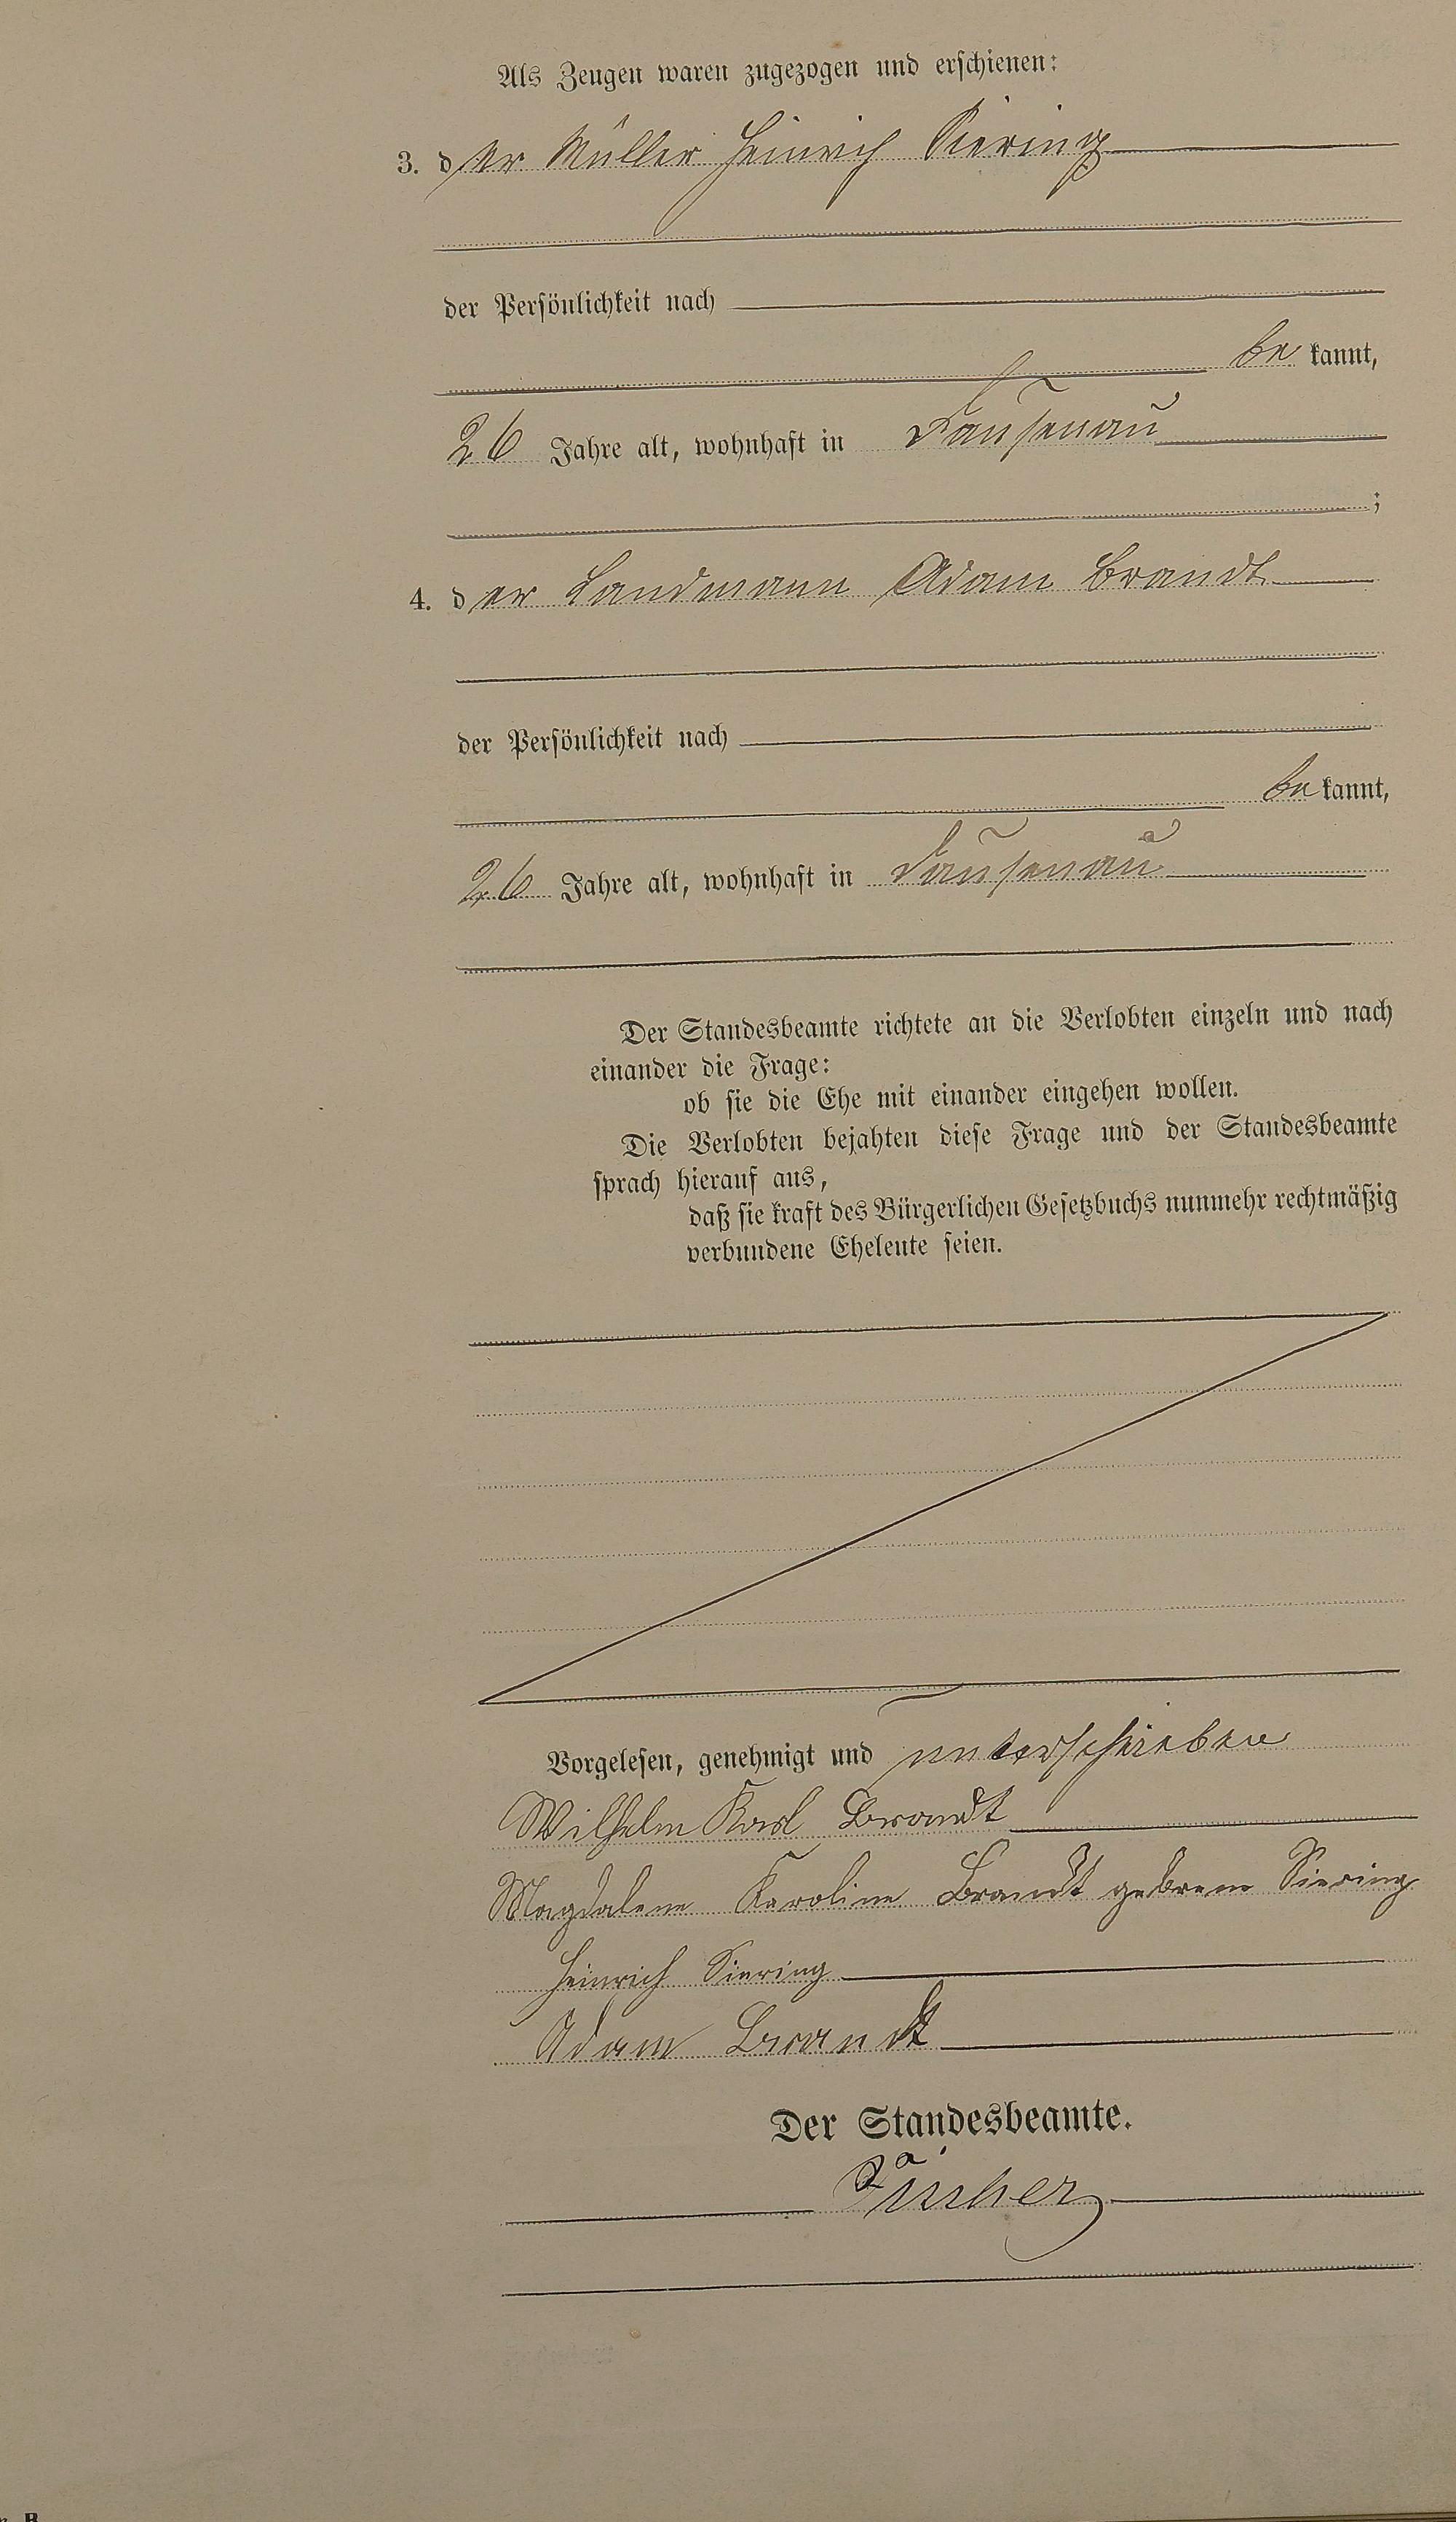 Als Zeugen waren zugezogen und erschienen:
3. der Müller Heinrich Siering
der Persönlichkeit nach
be kannt,
26 Jahre alt, wohnhaft in Dausenau
;
4. der Landmann Adam Brandt
der Persönlichkeit nach
be kannt,
26 Jahre alt, wohnhaft in Dausenau
Der Standesbeamte richtete an die Verlobten einzeln und nach
einander die Frage:
ob sie die Ehe mit einander eingehen wollen.
Die Verlobten bejahten diese Frage und der Standesbeamte
sprach hierauf aus,
daß sie kraft des Bürgerlichen Gesetzbuchs nunmehr rechtmäßig
verbundene Eheleute seien.
Vorgelesen, genehmigt und unterschrieben
Wilhelm Karl Brandt
Magdalene Karoline Brandt geborene Siering
Heinrich Siering
Adam Brandt
Der Standesbeamte.
B